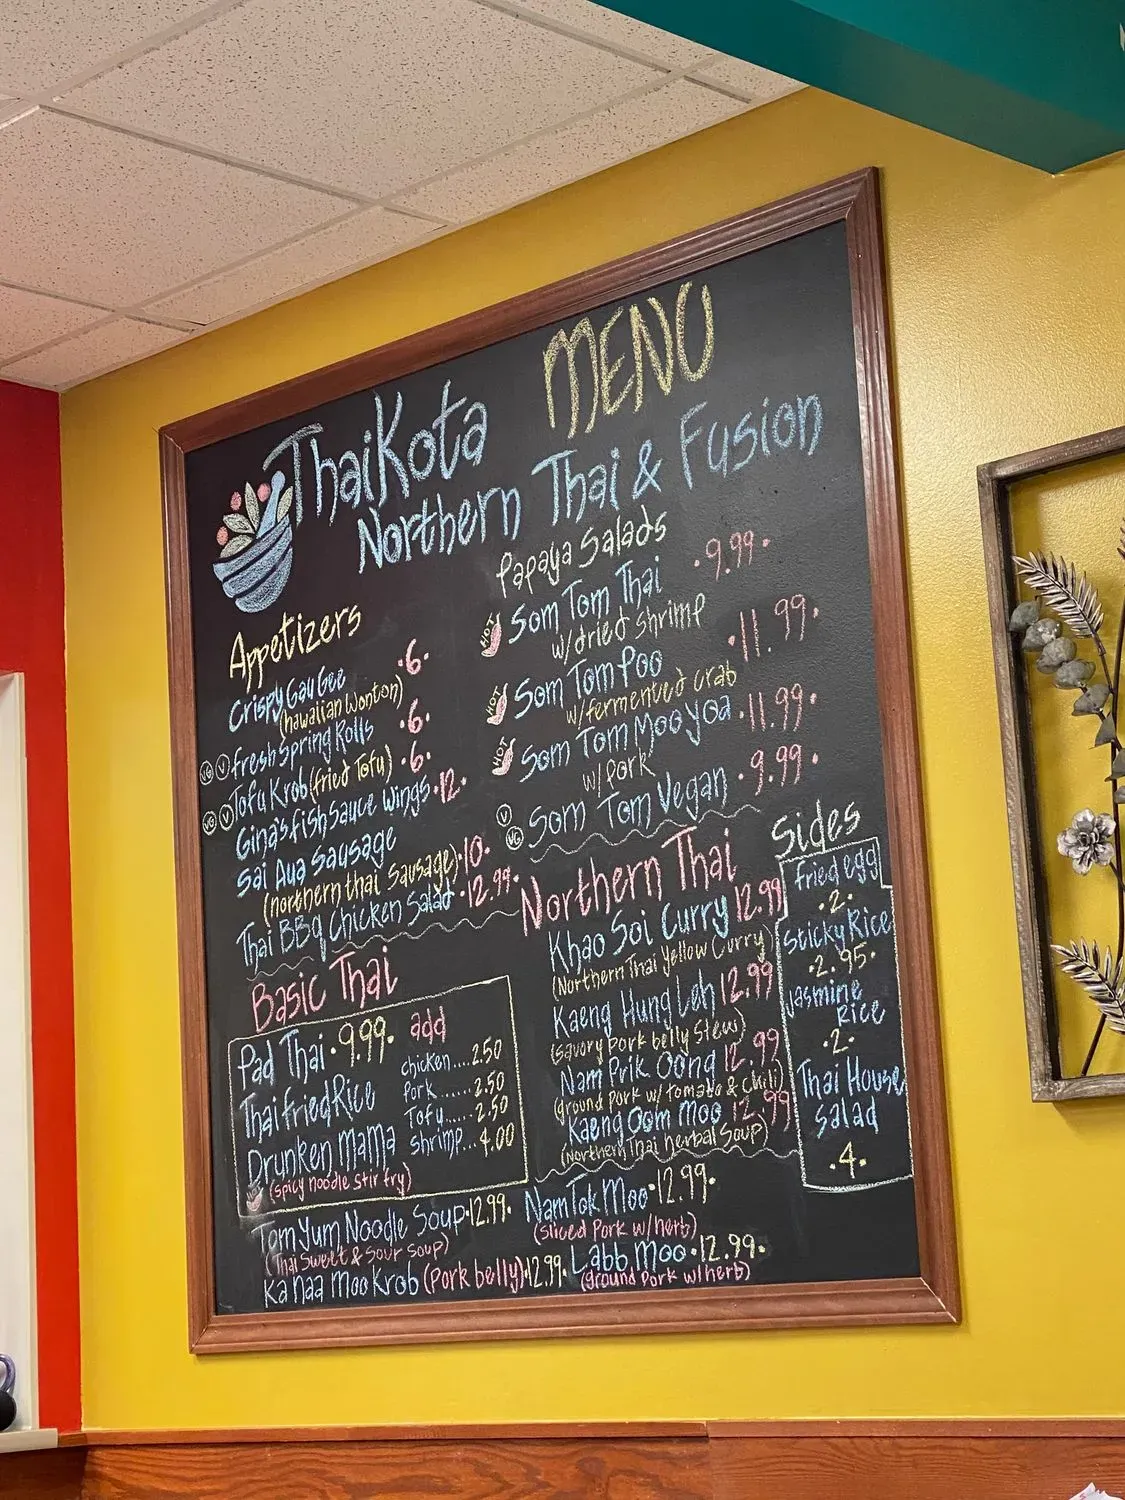 MENU
ThaiKota
Northern Thai & Fusion
Appetizers
Crispy Gau Gee •6•
(hawaiian Wonton)
VG V fresh Spring Rolls •6•
VG V Tofu Krob (fried Tofu) •6•
Gina's fish Sauce Wings •12•
Sai Aua Sausage
(northern thai Sausage) •10•
Thai BBq Chicken Salad •12.99•
Papaya Salads
HOT Som Tom Thai •9.99•
w/dried Shrimp
HOT Som Tom Poo •11.99•
w/fermented crab
HOT Som Tom Moo Yoa •11.99•
w/Pork
V VG Som Tom Vegan •9.99•
Basic Thai
Pad Thai •9.99• add
Thai fried Rice
Drunken Mama
(spicy noodle stir fry)
chicken....2.50
Pork......2.50
Tofu......2.50
Shrimp...4.00
Northern Thai
Khao Soi Curry 12.99
(Northern Thai Yellow Curry)
Kaeng Hung Leh 12.99
(savory pork belly Stew)
Nam Prik Oong 12.99
(ground Pork w/ tomato & chili)
Kaeng Oom Moo 12.99
(Northern Thai herbal Soup)
Sides
fried egg
•2•
Sticky Rice
•2.95•
Jasmine
Rice
•2•
Thai House
Salad
•4•
Tom Yum Noodle Soup •12.99•
(Thai Sweet & Sour Soup)
Ka Naa Moo Krob (Pork belly) •12.99•
Nam Tok Moo •12.99•
(Sliced Pork w/herb)
Labb Moo •12.99•
(ground Pork w/herb)